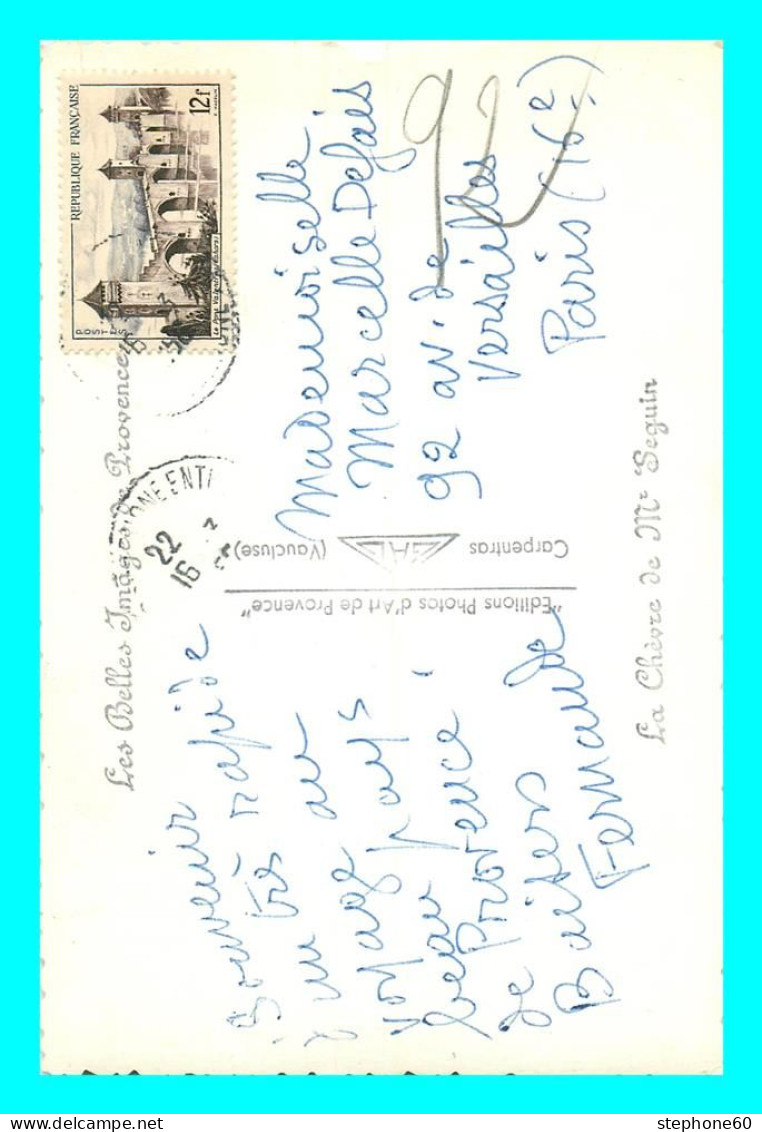 Les Belles Images de Provence
Souvenir
d'un très rapide
voyage au
beau pays
de Provence.
Baisers
Fernande
"Editions Photos d'Art de Provence"
Carpentras
(Vaucluse)
La Chèvre de Mr Seguin
REPUBLIQUE FRANÇAISE
12f
POSTES
Le Pont Valentré Cahors
22
16
Mademoiselle
Marcelle Defais
92 av. de
Versailles
Paris (16e)
stephone60